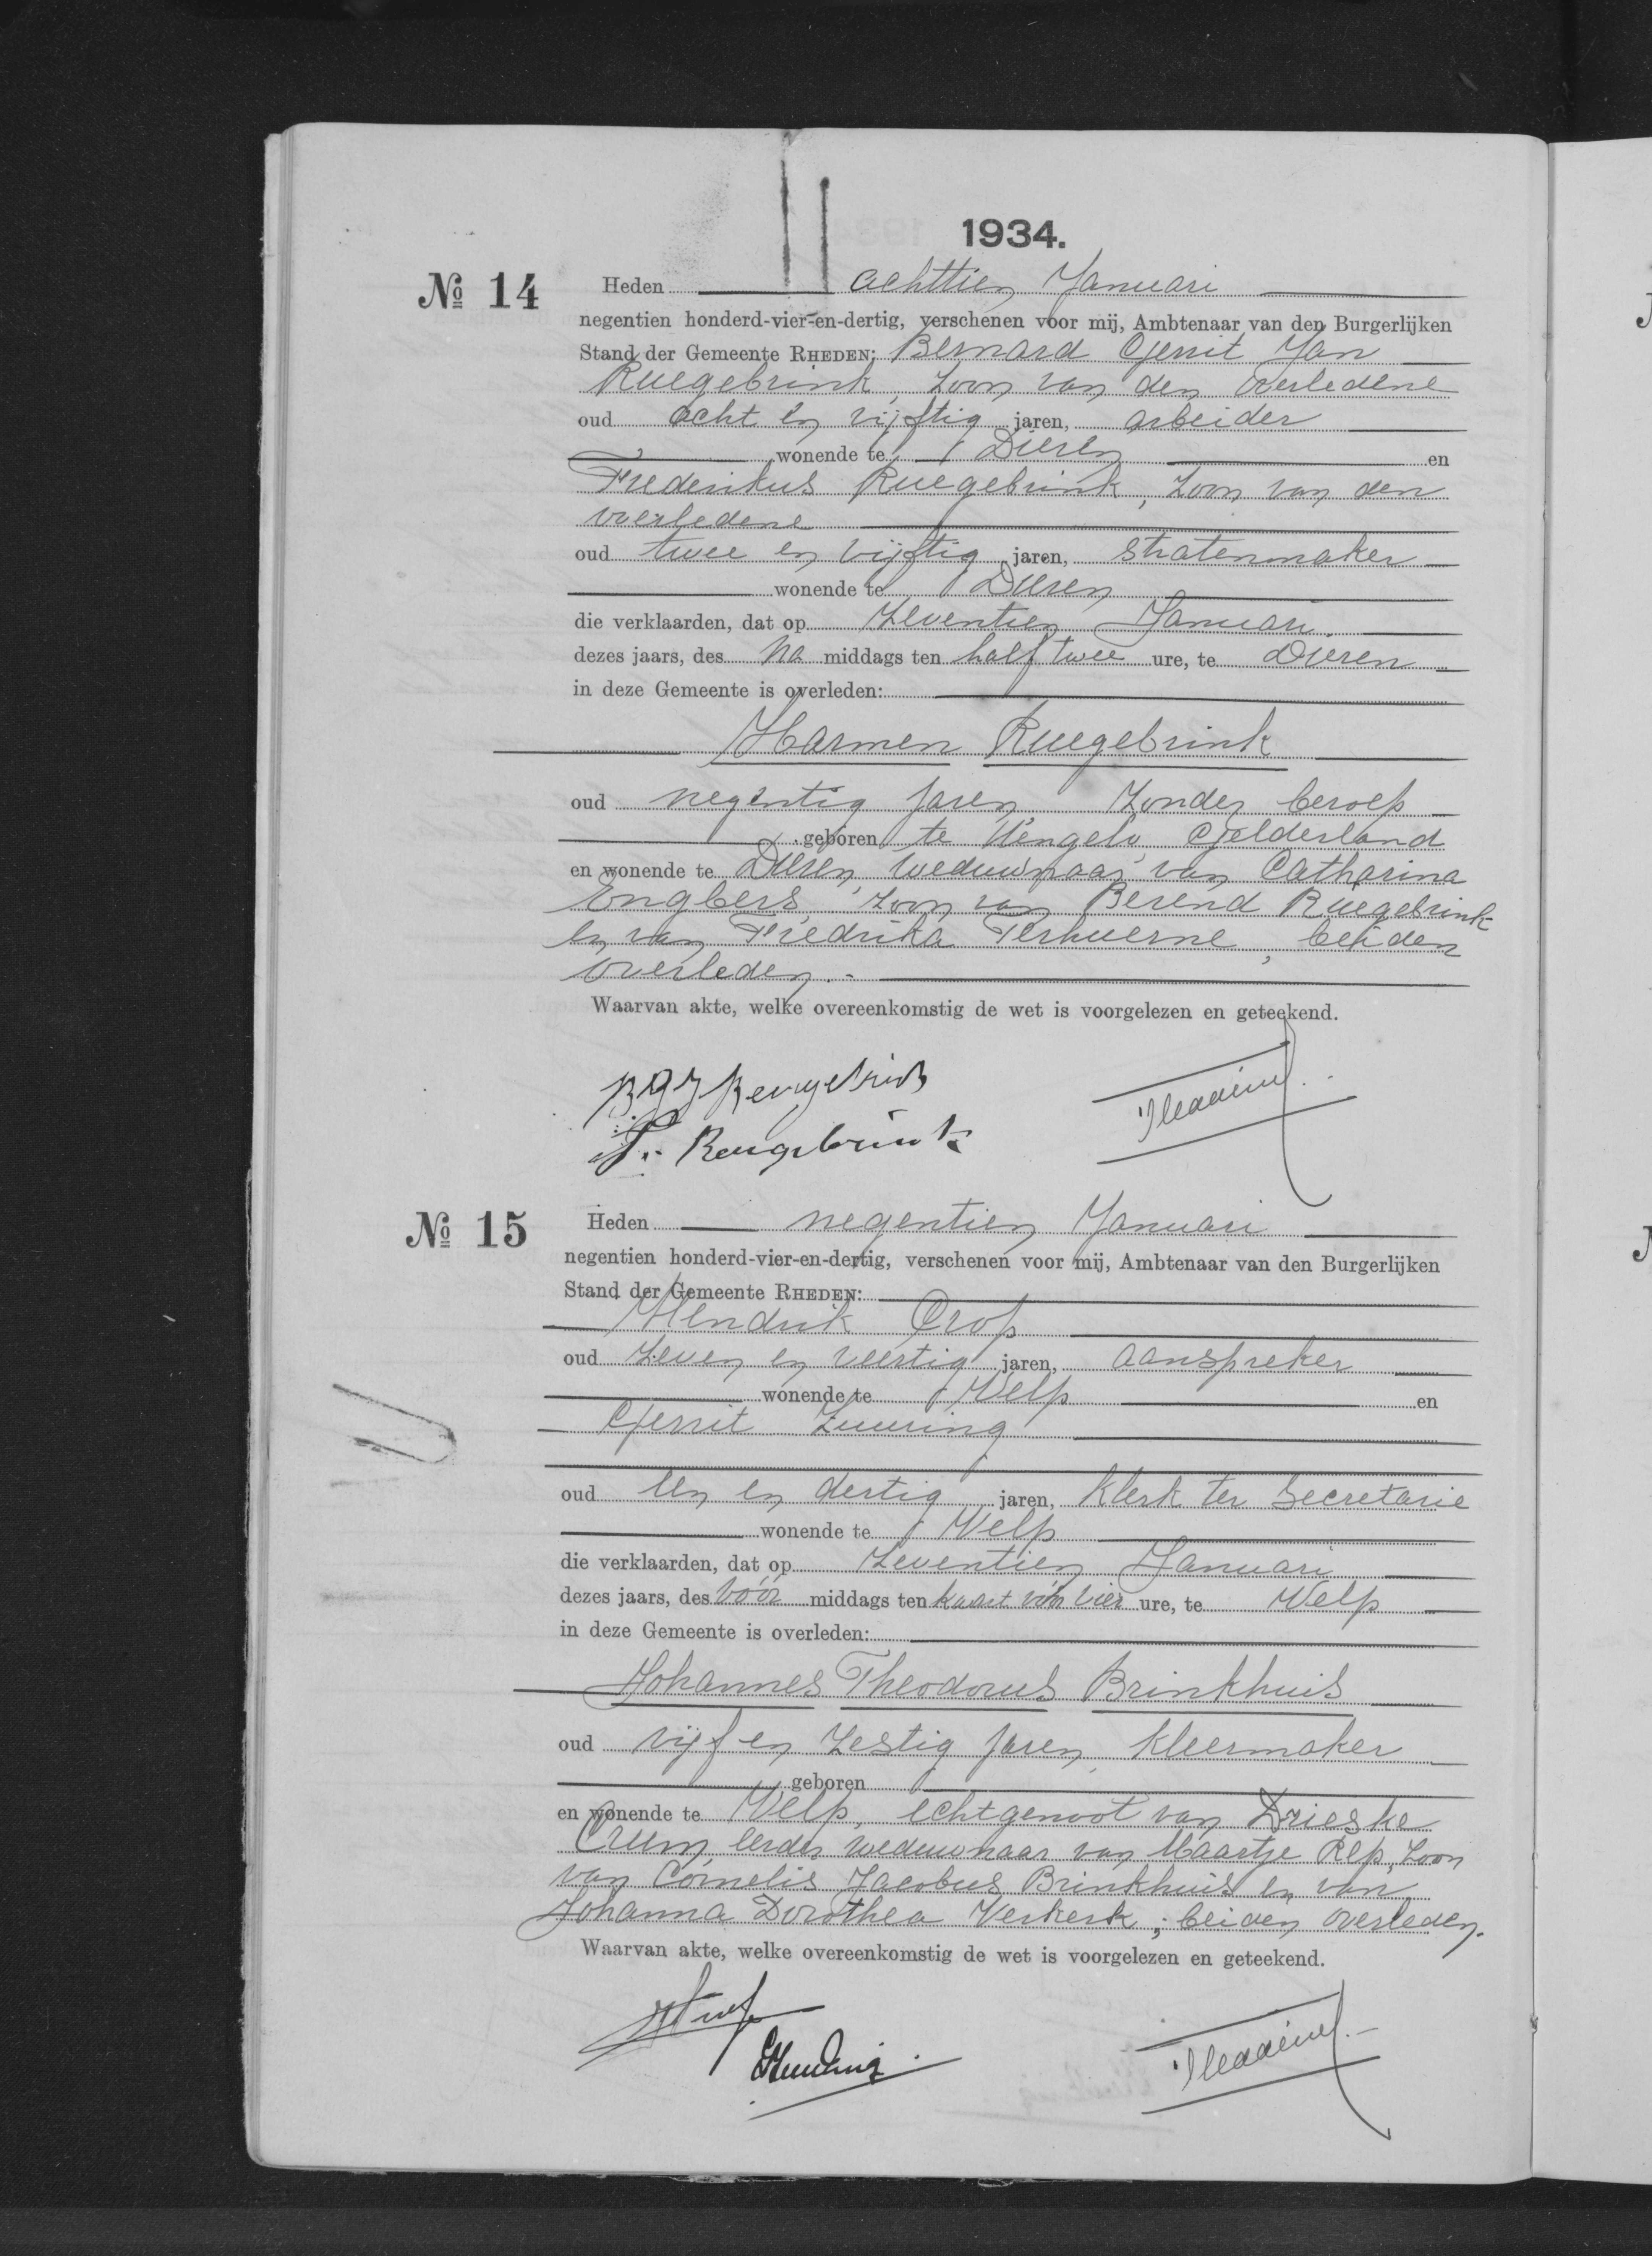 1934.
№ 14
Heden achttien Januari
negentien honderd-vier-en-dertig, verschenen voor mij, Ambtenaar van den Burgerlijken
Stand der Gemeente RHEDEN: Bernard Gerrit Jan
Ruegebrink, zoon van den overledene
oud acht en vijftig jaren, arbeider
wonende te Dieren en
Frederikus Ruegebrink, zoon van den
overledene
oud twee en vijftig jaren, stratenmaker
wonende te Dieren
die verklaarden, dat op zeventien Januari
dezes jaars, des na middags ten half twee ure, te Dieren
in deze Gemeente is overleden:
Harmen Ruegebrink
oud negentig jaren zonder beroep
geboren te Hengelo, Gelderland
en wonende te Dieren, weduwnaar van Catharina
Engbers, zoon van Berend Ruegebrink
en van Fredrika Terhuerne, beiden
overleden.-
Waarvan akte, welke overeenkomstig de wet is voorgelezen en geteekend.
№ 15
Heden negentien Januari
negentien honderd-vier-en-dertig, verschenen voor mij, Ambtenaar van den Burgerlijken
Stand der Gemeente RHEDEN:
Hendrik Crop
oud zeven en veertig jaren, aanspreker
wonende te Velp en
Gerrit Zuuring
oud een en dertig jaren, klerk ter Secretarie
wonende te Velp
die verklaarden, dat op zeventien Januari
dezes jaars, des vóór middags ten kwart vóór vier ure, te Velp
in deze Gemeente is overleden:
Johannes Theodorus Brinkhuis
oud vijf en zestig jaren, kleermaker
geboren
en wonende te Velp, echtgenoot van Drieske
Crum, eerder weduwnaar van Maartje Relp, zoon
van Cornelis Jacobus Brinkhuis en van
Johanna Dorothea Verkerk, beiden overleden.
Waarvan akte, welke overeenkomstig de wet is voorgelezen en geteekend.